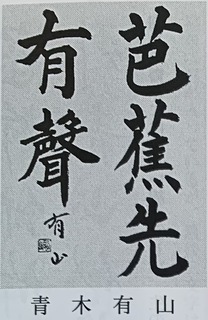 芭蕉先
有聲
有山
青木有山